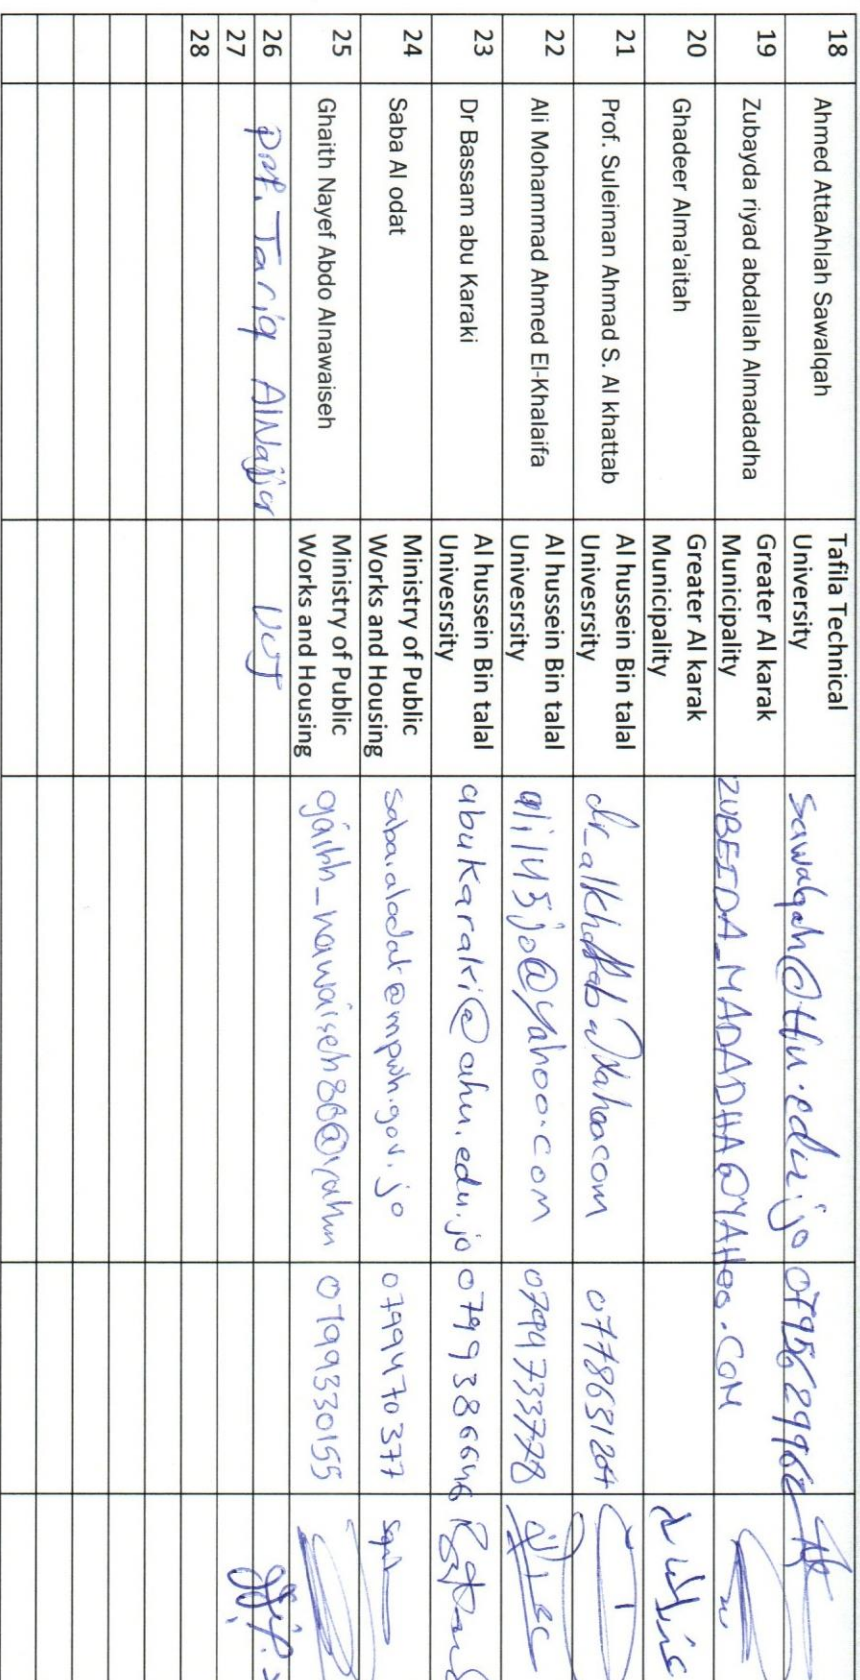 18 Ahmed AttaAhlah Sawalqah Tafila Technical
University sawalqah@ttu.edu.jo
19 Zubayda riyad abdallah Almadadha Greater Al karak
Municipality ZUBEIDA_MADADHA@YAHOO.COM
20 Ghadeer Alma'aitah Greater Al karak
Municipality
21 Prof. Suleiman Ahmad S. Al khattab Al hussein Bin talal
Univesrsity dr_alkhattab@yahoo.com 0778631204
22 Ali Mohammad Ahmed El-Khalaifa Al hussein Bin talal
Univesrsity 0794733778
23 Dr Bassam abu Karaki Al hussein Bin talal
Univesrsity abukaraki@ahu.edu.jo 0799386646
24 Saba Al odat Ministry of Public
Works and Housing saba.alodat@mpwh.gov.jo 0799470377
25 Ghaith Nayef Abdo Alnawaiseh Ministry of Public
Works and Housing 0799330155
26 Prof. Tariq AlNajjar UOJ
27
28